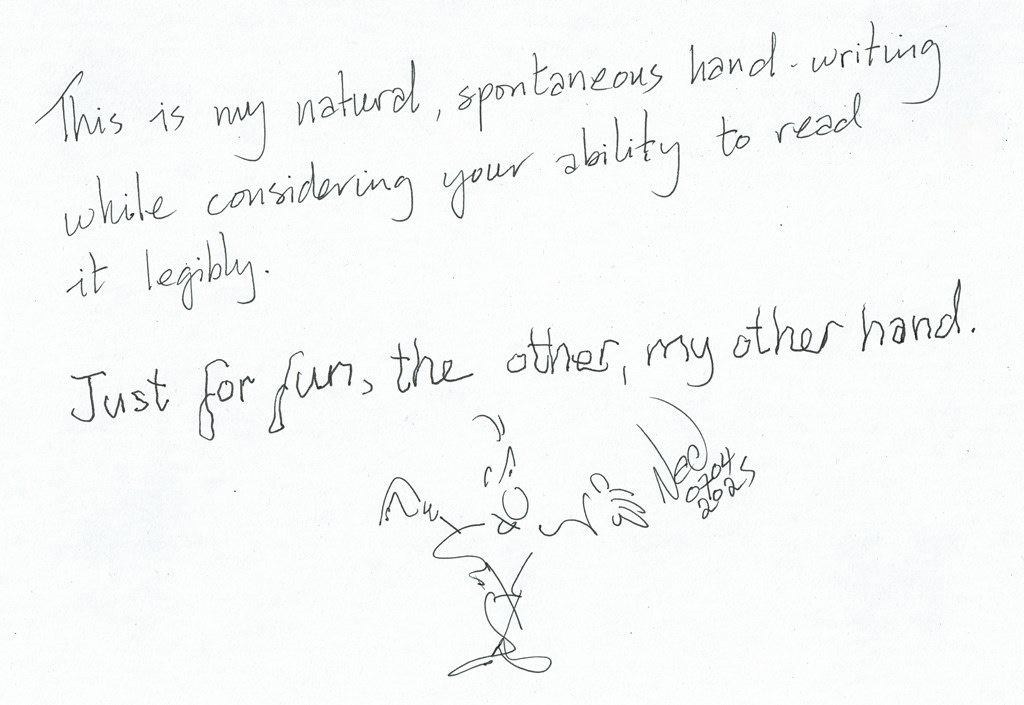 This is my natural, spontaneous hand-writing
while considering your ability to read
it legibly.
Just for fun, the other, my other hand.
Neo
0704
2025